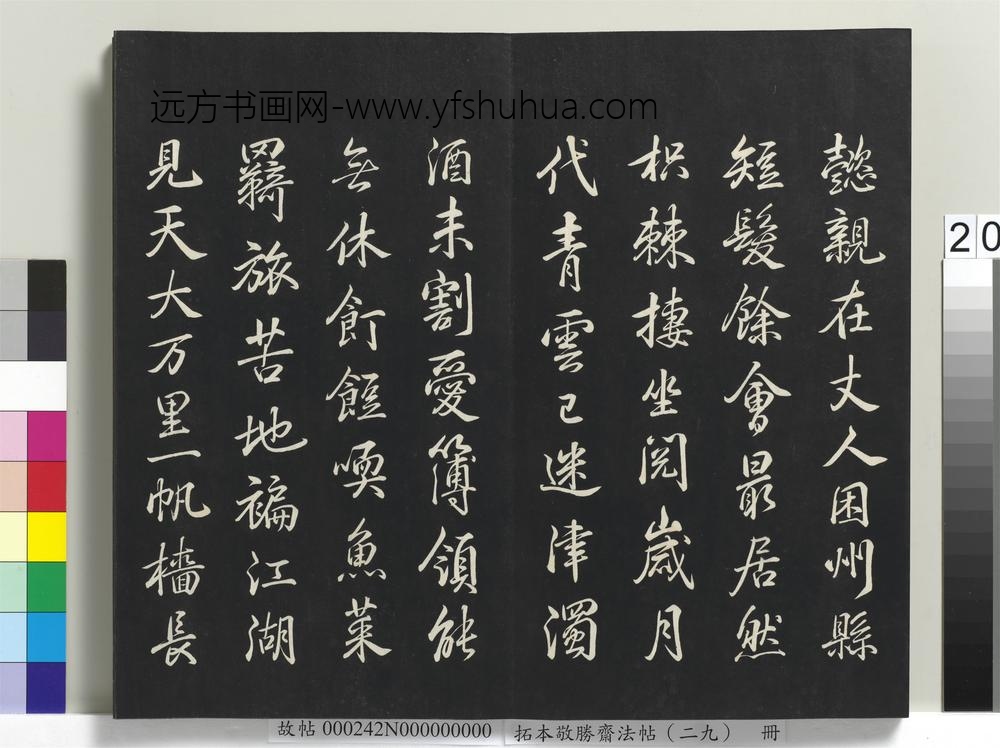 远方书画网-www.yfshuhua.com
懿親在丈人困州縣
短髮餘會最居然
枳棘棲坐閱歲月
代青雲已迷津濁
酒未割愛簿領能
無休飣餖喚魚菜
羈旅苦地褊江湖
見天大万里一帆檣長
20
故帖 000242N000000000 拓本敬勝齋法帖（二九） 冊